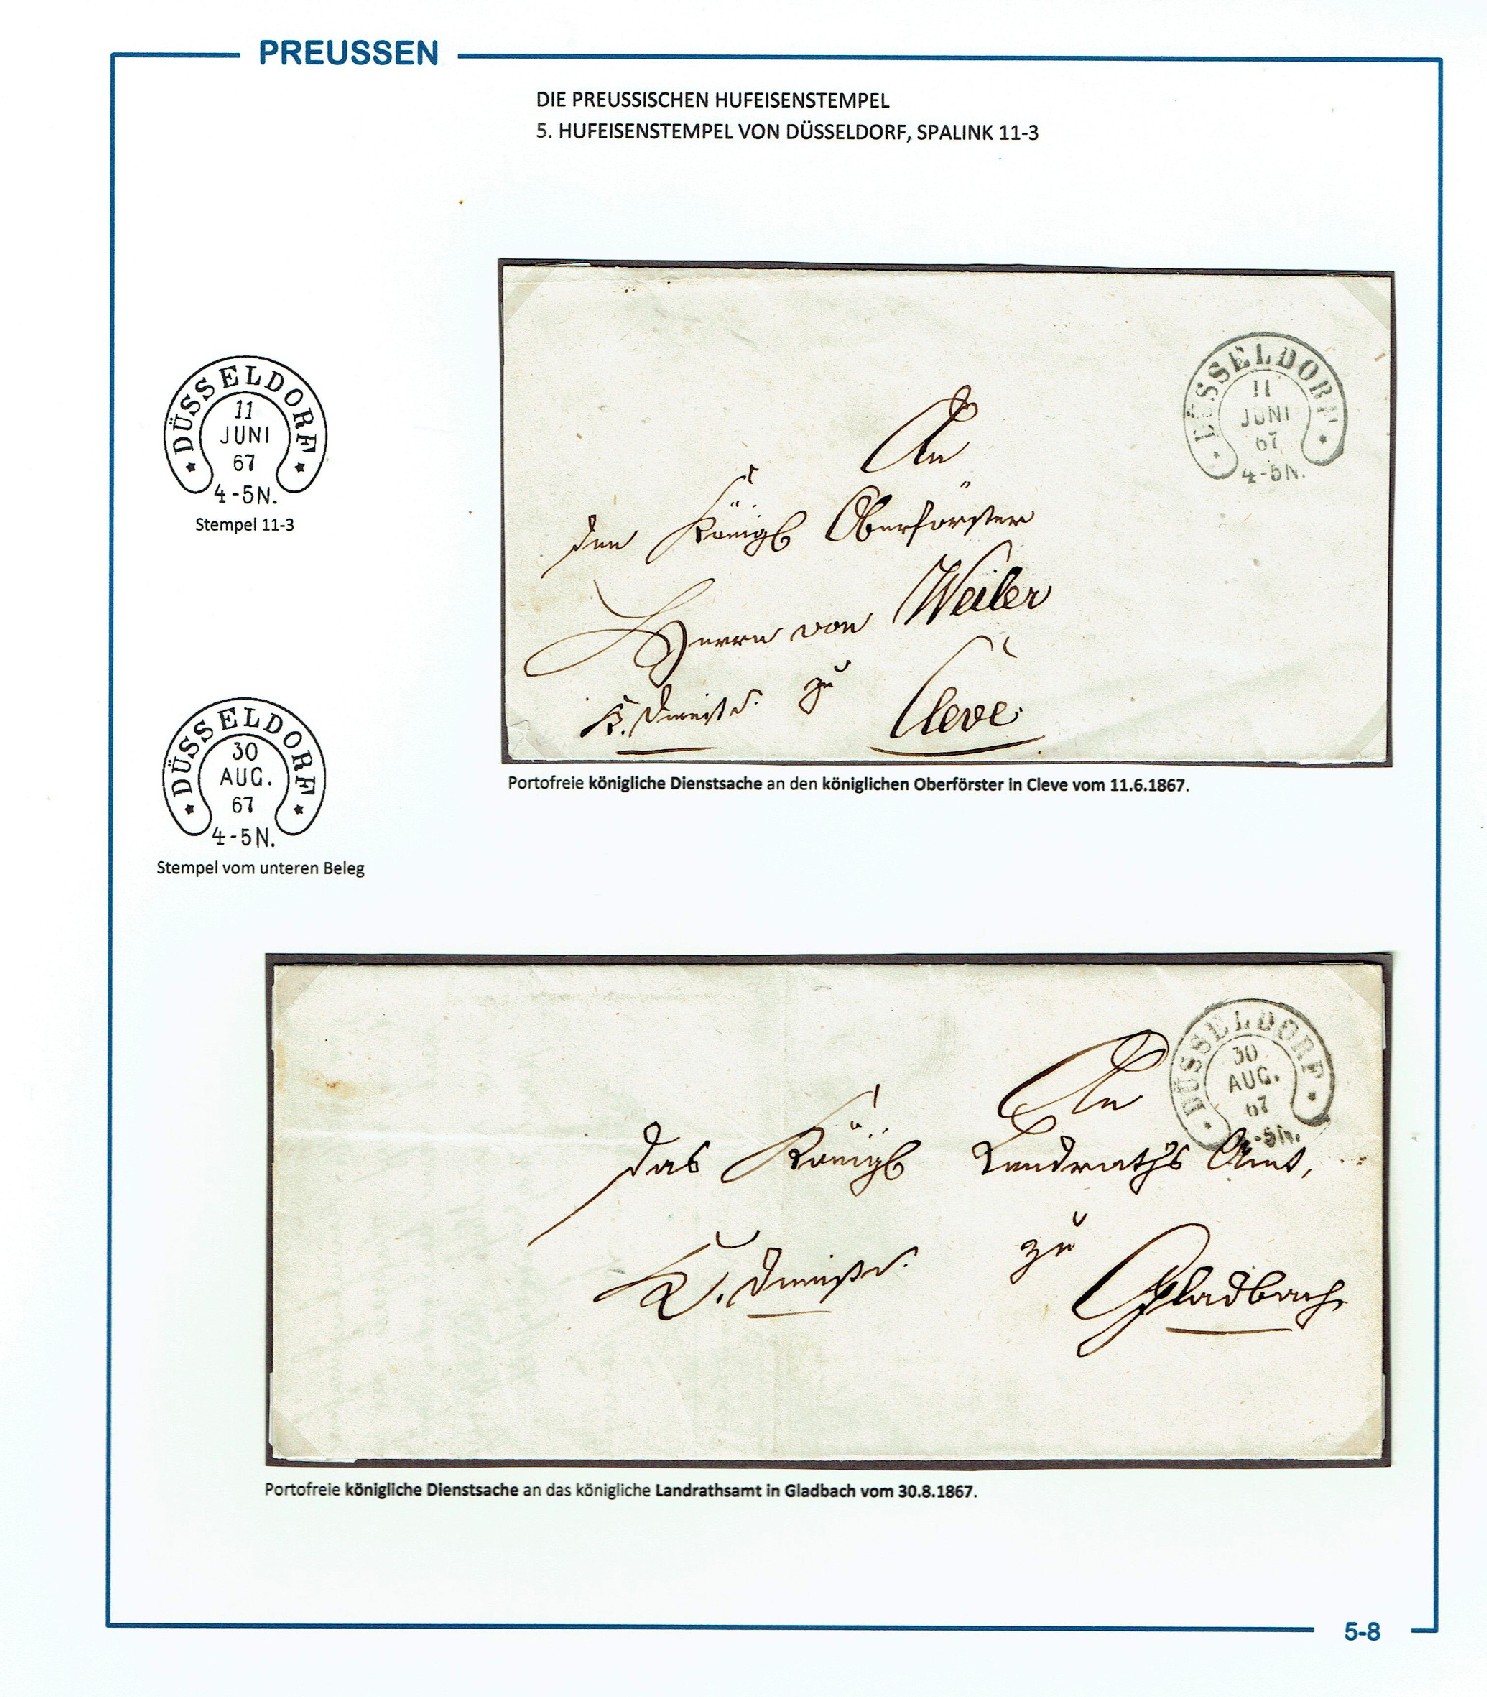 PREUSSEN
DIE PREUSSISCHEN HUFEISENSTEMPEL
5. HUFEISENSTEMPEL VON DÜSSELDORF, SPALINK 11-3
DÜSSELDORF
11
JUNI
67
4-5N.
Stempel 11-3
DÜSSELDORF
11
JUNI
67
4-5N.
An
den Königl Oberförster
Herrn von Weiler
K. Diensts. zu Cleve
Portofreie königliche Dienstsache an den königlichen Oberförster in Cleve vom 11.6.1867.
DÜSSELDORF
30
AUG.
67
4-5N.
Stempel vom unteren Beleg
DÜSSELDORF
30
AUG.
67
4-5N.
An
das Königl Landraths Amt,
K. Diensts. zu
Gladbach
Portofreie königliche Dienstsache an das königliche Landrathsamt in Gladbach vom 30.8.1867.
5-8